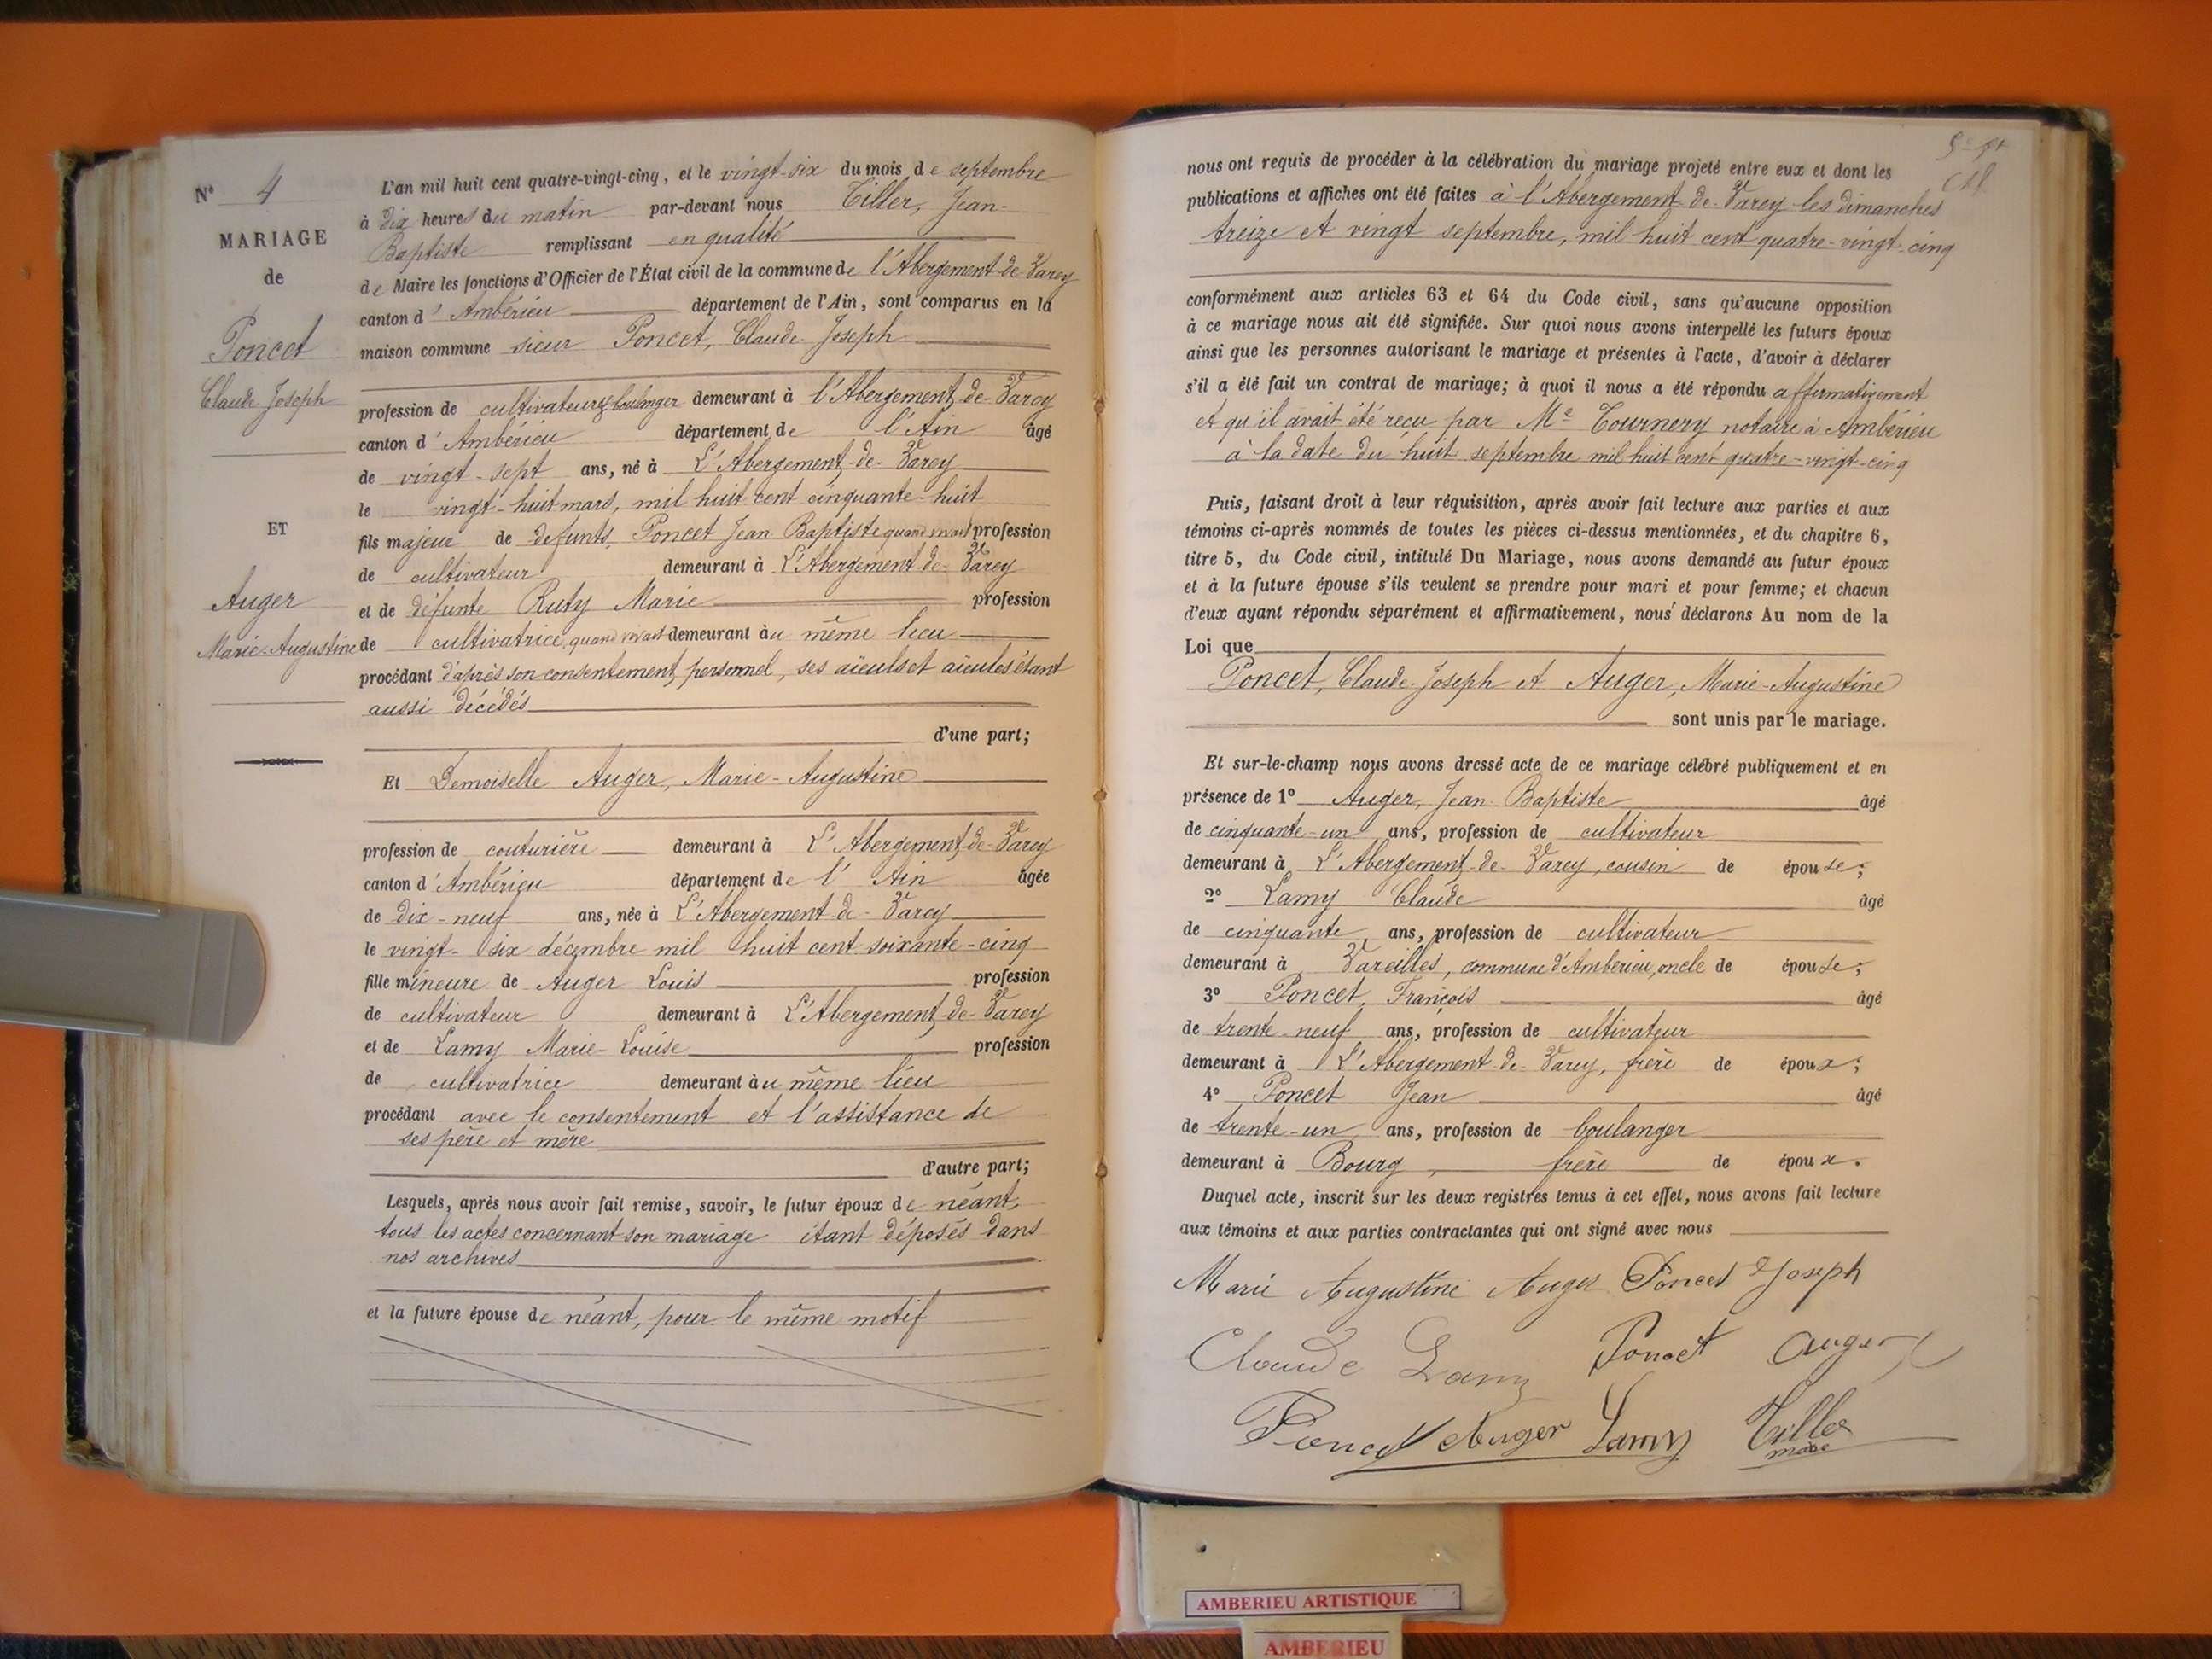 N° 4
MARIAGE
de
Poncet
Claude Joseph
ET
Auger
Marie-Augustine
L'an mil huit cent quatre-vingt-cinq, et le vingt-six du mois de septembre
à dix heures du matin par-devant nous Tiller, Jean-
Baptiste remplissant en qualité
de Maire les fonctions d'Officier de l'État civil de la commune de l'Abergement-de-Varey
canton d'Ambérieu département de l'Ain, sont comparus en la
maison commune sieur Poncet, Claude-Joseph
profession de cultivateur & boulanger demeurant à l'Abergement-de-Varey
canton d'Ambérieu département de l'Ain âgé
de vingt-sept ans, né à L'Abergement-de-Varey
le vingt-huit mars, mil huit cent cinquante-huit
fils majeur de defunts Poncet Jean Baptiste quand vivait profession
de cultivateur demeurant à L'Abergement-de-Varey
et de défunte Ruty Marie profession
de cultivatrice, quand vivait demeurant au même lieu
procédant d'après son consentement personnel, ses aïeuls et aïeules étant
aussi décédés
d'une part;
Et Demoiselle Auger, Marie-Augustine
profession de couturière demeurant à L'Abergement-de-Varey
canton d'Ambérieu département de l'Ain âgée
de dix-neuf ans, née à L'Abergement-de-Varey
le vingt-six décembre mil huit cent soixante-cinq
fille mineure de Auger Louis profession
de cultivateur demeurant à L'Abergement-de-Varey
et de Lamy Marie-Louise profession
de cultivatrice demeurant au même lieu
procédant avec le consentement et l'assistance de
ses père et mère
d'autre part;
Lesquels, après nous avoir fait remise, savoir, le futur époux de néant,
tous les actes concernant son mariage étant déposés dans
nos archives
et la future épouse de néant, pour le même motif
nous ont requis de procéder à la célébration du mariage projeté entre eux et dont les
publications et affiches ont été faites à l'Abergement-de-Varey les dimanches
treize et vingt septembre, mil huit cent quatre-vingt-cinq
conformément aux articles 63 et 64 du Code civil, sans qu'aucune opposition
à ce mariage nous ait été signifiée. Sur quoi nous avons interpellé les futurs époux
ainsi que les personnes autorisant le mariage et présentes à l'acte, d'avoir à déclarer
s'il a été fait un contrat de mariage; à quoi il nous a été répondu affirmativement
et qu'il avait été reçu par Me Tournery notaire à Ambérieu
à la date du huit septembre mil huit cent quatre-vingt-cinq
Puis, faisant droit à leur réquisition, après avoir fait lecture aux parties et aux
témoins ci-après nommés de toutes les pièces ci-dessus mentionnées, et du chapitre 6,
titre 5, du Code civil, intitulé Du Mariage, nous avons demandé au futur époux
et à la future épouse s'ils veulent se prendre pour mari et pour femme; et chacun
d'eux ayant répondu séparément et affirmativement, nous déclarons Au nom de la
Loi que
Poncet, Claude-Joseph et Auger, Marie-Augustine
sont unis par le mariage.
Et sur-le-champ nous avons dressé acte de ce mariage célébré publiquement et en
présence de 1° Auger, Jean Baptiste âgé
de cinquante-un ans, profession de cultivateur
demeurant à L'Abergement-de-Varey, cousin de épouse;
2° Lamy Claude âgé
de cinquante ans, profession de cultivateur
demeurant à Vareilles, commune d'Amberieu, oncle de épouse;
3° Poncet, François âgé
de trente-neuf ans, profession de cultivateur
demeurant à L'Abergement-de-Varey, frère de époux;
4° Poncet Jean âgé
de trente-un ans, profession de boulanger
demeurant à Bourg, frère de époux.
Duquel acte, inscrit sur les deux registres tenus à cet effet, nous avons fait lecture
aux témoins et aux parties contractantes qui ont signé avec nous
Marie Augustine Auger Poncet Joseph
Claude Lamy Poncet Auger
Poncet Auger Lamy Tiller
maire
AMBERIEU ARTISTIQUE
AMBERIEU